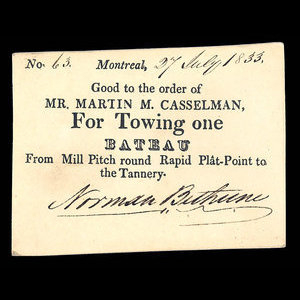 No. 63. Montreal, 27 July 1833.
Good to the order of
MR. MARTIN M. CASSELMAN,
For Towing one
BATEAU
From Mill Pitch round Rapid Plât-Point to
the Tannery.
Norman Bethune